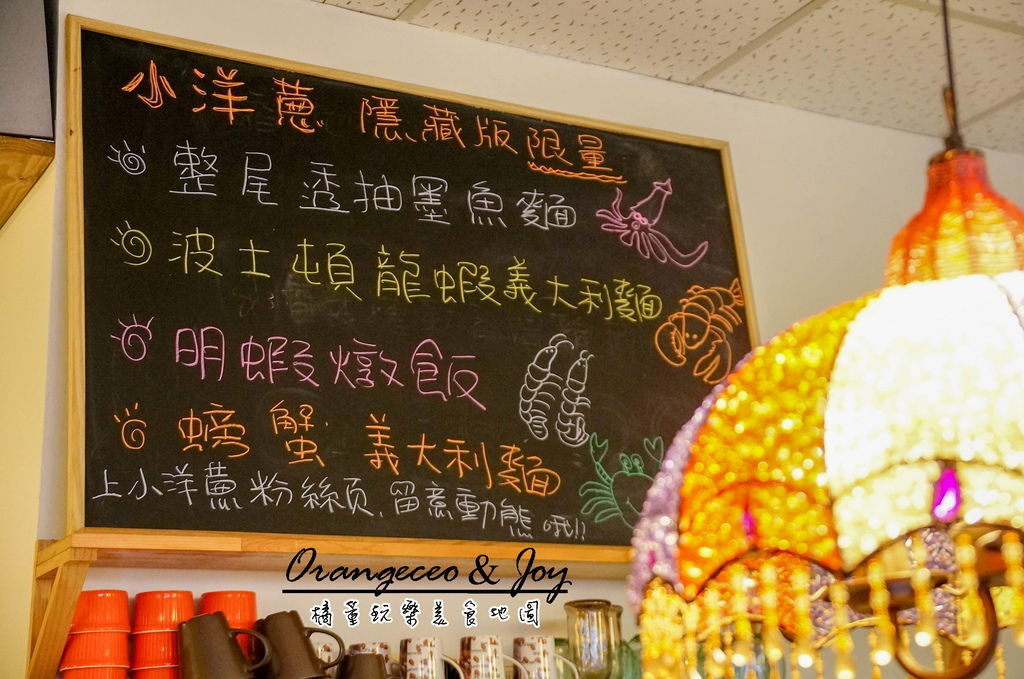 小洋蔥 隱藏版限量
整尾透抽墨魚麵
波士頓龍蝦義大利麵
明蝦燉飯
螃蟹義大利麵
上小洋蔥粉絲頁,留意動態哦!!
Orangeceo & Joy
橘董玩樂美食地圖